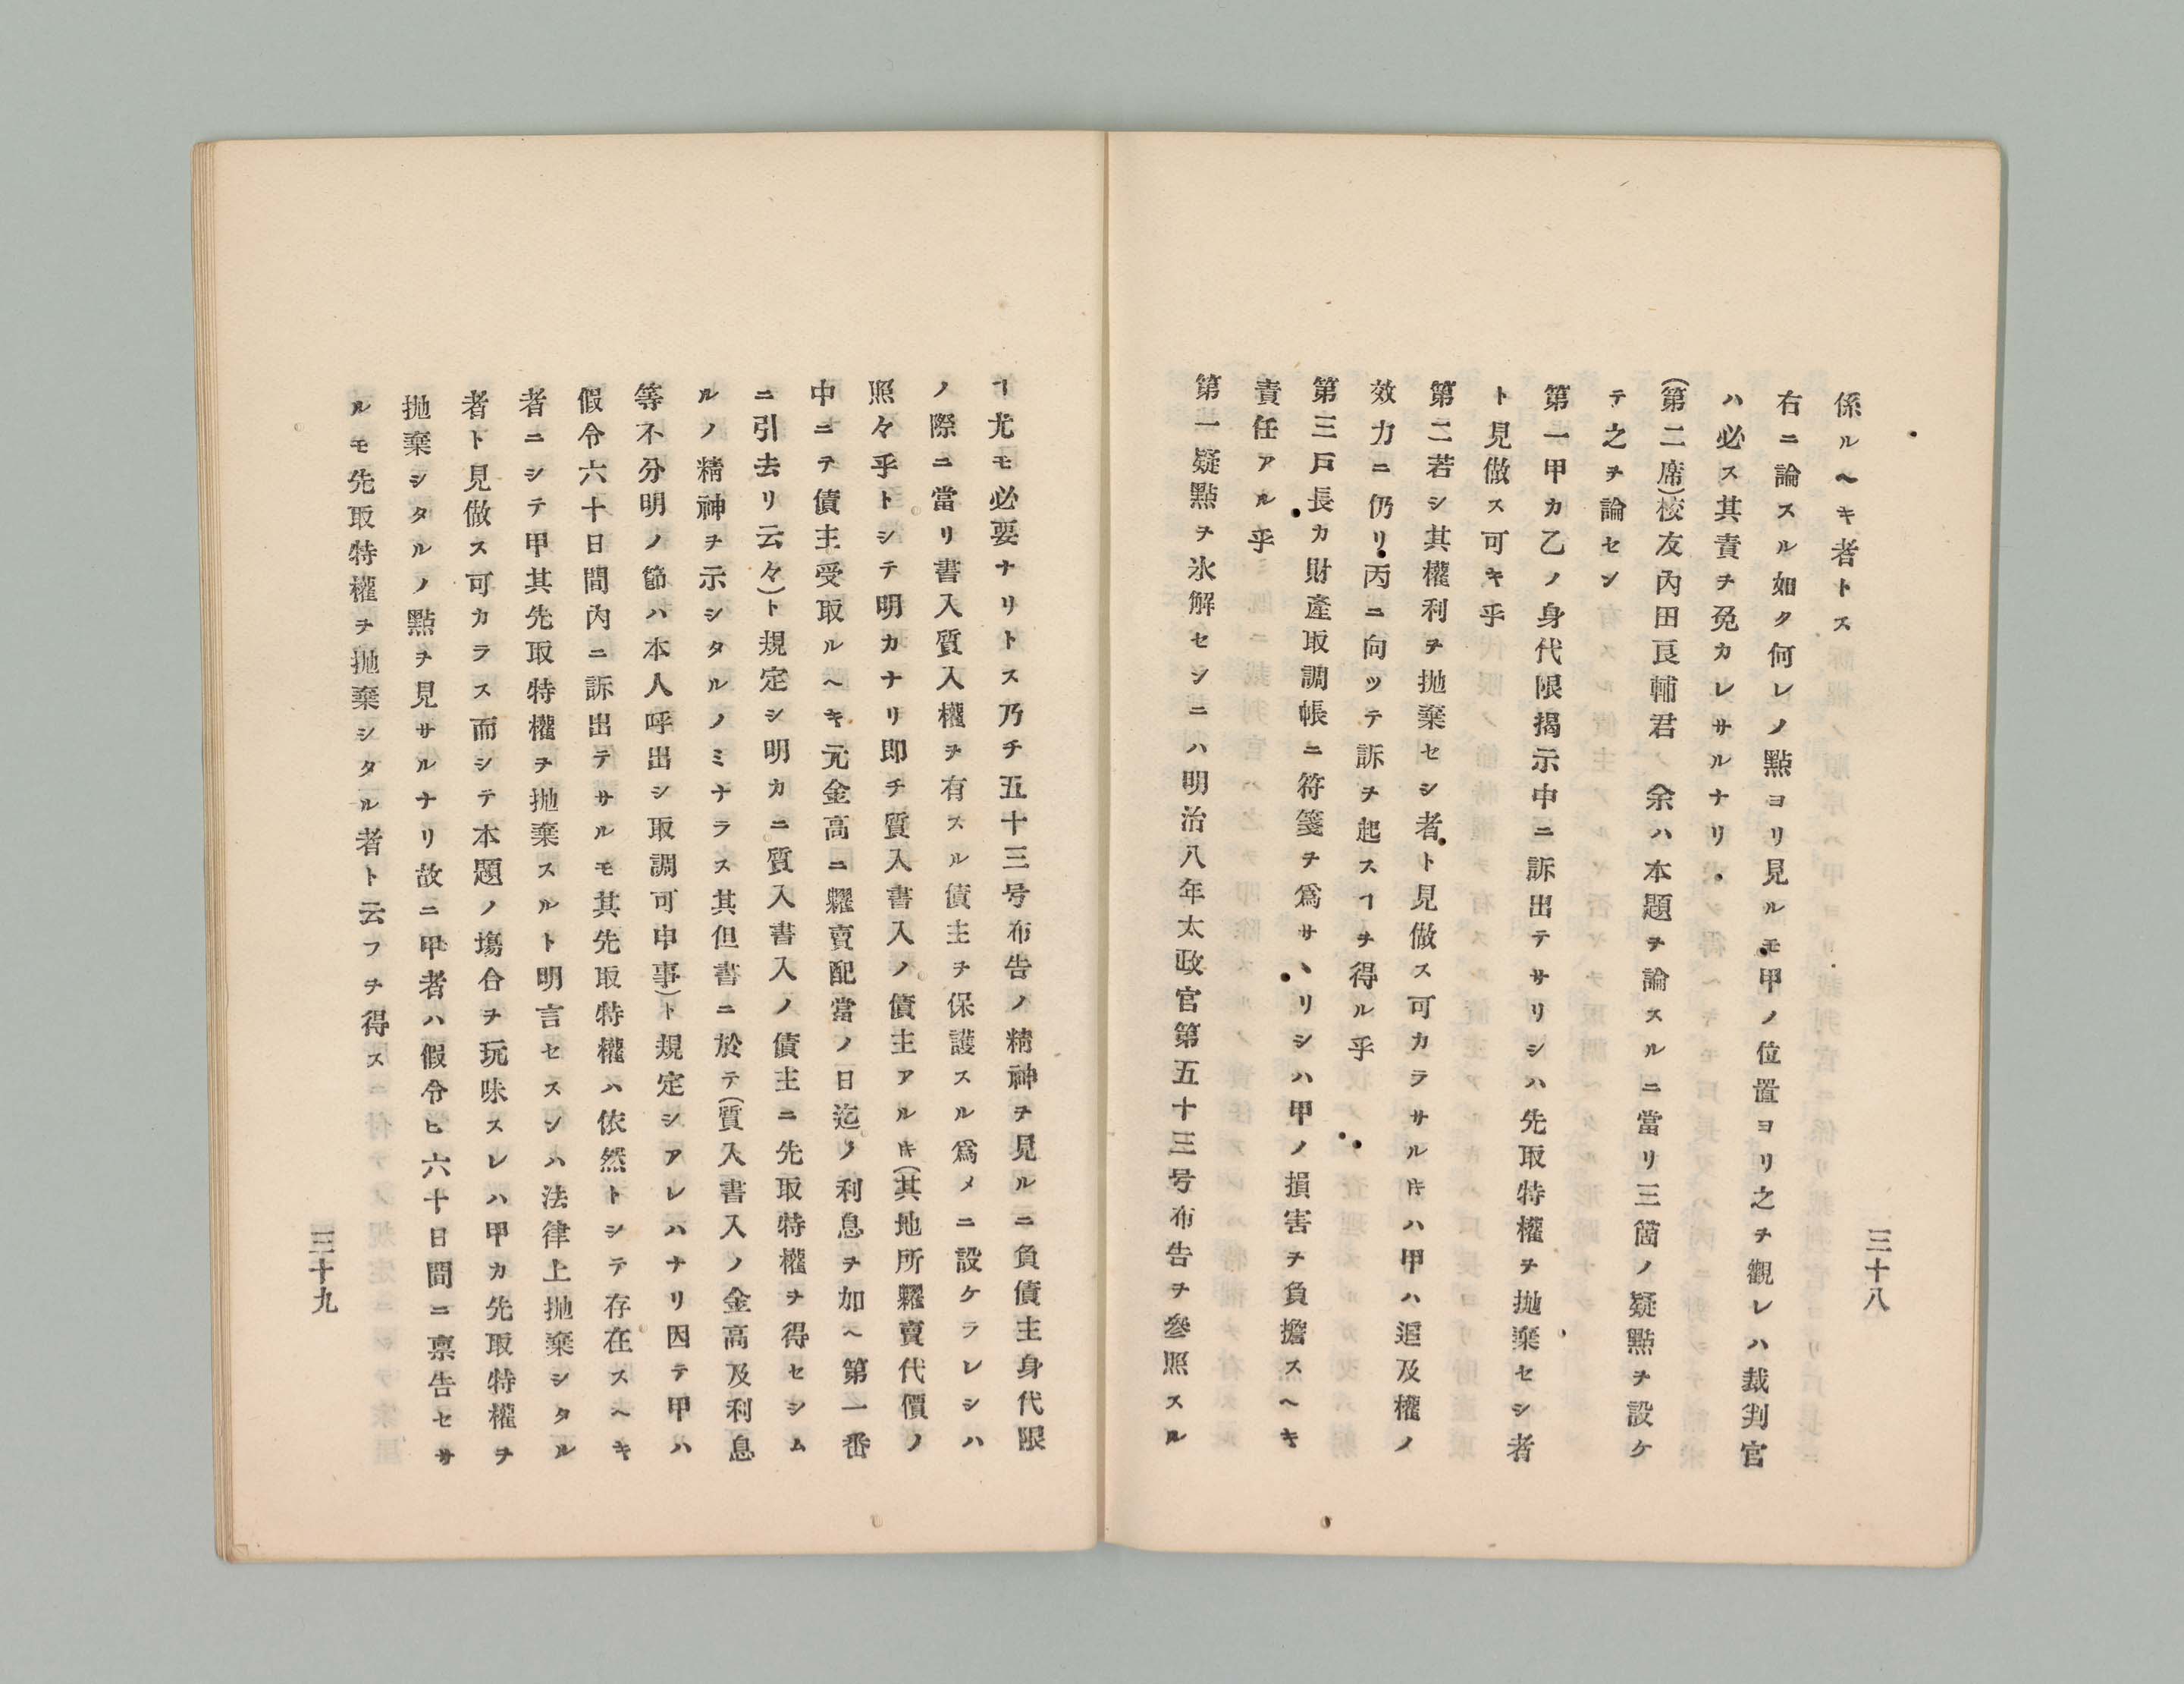 係ルヘキ者トス
右ニ論スル如ク何レノ點ヨリ見ルモ甲ノ位置ヨリ之ヲ觀レハ裁判官
ハ必ス其責ヲ免カレサルナリ
(第二席)校友内田良輔君 余ハ本題ヲ論スルニ當リ三箇ノ疑點ヲ設ケ
テ之ヲ論セン
第一甲カ乙ノ身代限揭示中ニ訴出テサリシハ先取特權ヲ抛棄セシ者
ト見做ス可キ乎
第二若シ其權利ヲ抛棄セシ者ト見做ス可カラサル𪜈ハ甲ハ追及權ノ
效力ニ仍リ丙ニ向ッテ訴ヲ起スヿヲ得ル乎
第三戸長カ財產取調帳ニ符箋ヲ爲サヽリシハ甲ノ損害ヲ負擔スヘキ
責任アル乎
第一疑點ヲ氷解セシニハ明治八年太政官第五十三号布告ヲ參照スル
三十八
ヿ尤モ必要ナリトス乃チ五十三号布告ノ精神ヲ見ルニ負債主身代限
ノ際ニ當リ書入質入權ヲ有スル債主ヲ保護スル爲メニ設ケラレシハ
照々乎トシテ明カナリ即チ質入書入ノ債主アル𪜈(其地所糶賣代價ノ
中ニテ債主受取ルヘキ元金高ニ糶賣配當ノ日迄ノ利息ヲ加ヘ第一番
ニ引去リ云々)ト規定シ明カニ質入書入ノ債主ニ先取特權ヲ得セシム
ルノ精神ヲ示シタルノミナラス其但書ニ於テ(質入書入ノ金高及利息
等不分明ノ節ハ本人呼出シ取調可申事)ト規定シアレハナリ因テ甲ハ
假令六十日間内ニ訴出テサルモ其先取特權ハ依然トシテ存在スヘキ
者ニシテ甲其先取特權ヲ抛棄スルト明言セスンハ法律上抛棄シタル
者ト見做ス可カラス而シテ本題ノ塲合ヲ玩味スレハ甲カ先取特權ヲ
抛棄シタルノ點ヲ見サルナリ故ニ甲者ハ假令ヒ六十日間ニ稟告セサ
ルモ先取特權ヲ抛棄シタル者ト云フヲ得ス
三十九